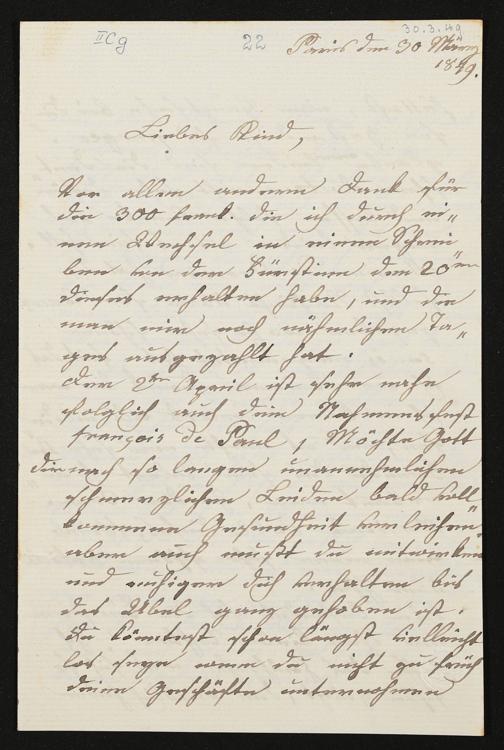 IICg 22 30.3.49
Paris den 30 März
1849.
Liebes Kind,
Vor allem anderem Dank für
die 300 frank. die ich durch ei„
nen Wechsel in einem Schrei
ben von der Fürstinn den 20ten
dieses erhalten habe, und die
man mir noch nähmlichen Ta„
ges ausgezahlt hat.
Der 2te April ist sehr nahe
folglich auch dein Nahmensfest
françois de Paul, Möchte Gott
dir nach so langen unannehmlichen
schmerzlichen Leiden bald voll„
kommene Gesundheit verleihen,
aber auch musst du mitwirken
und ruhiger dich verhalten bis
das Übel ganz gehoben ist.
Du könntest schon längst vielleicht
los seyn wenn du nicht zu früh
deine Geschäfte unternohmen